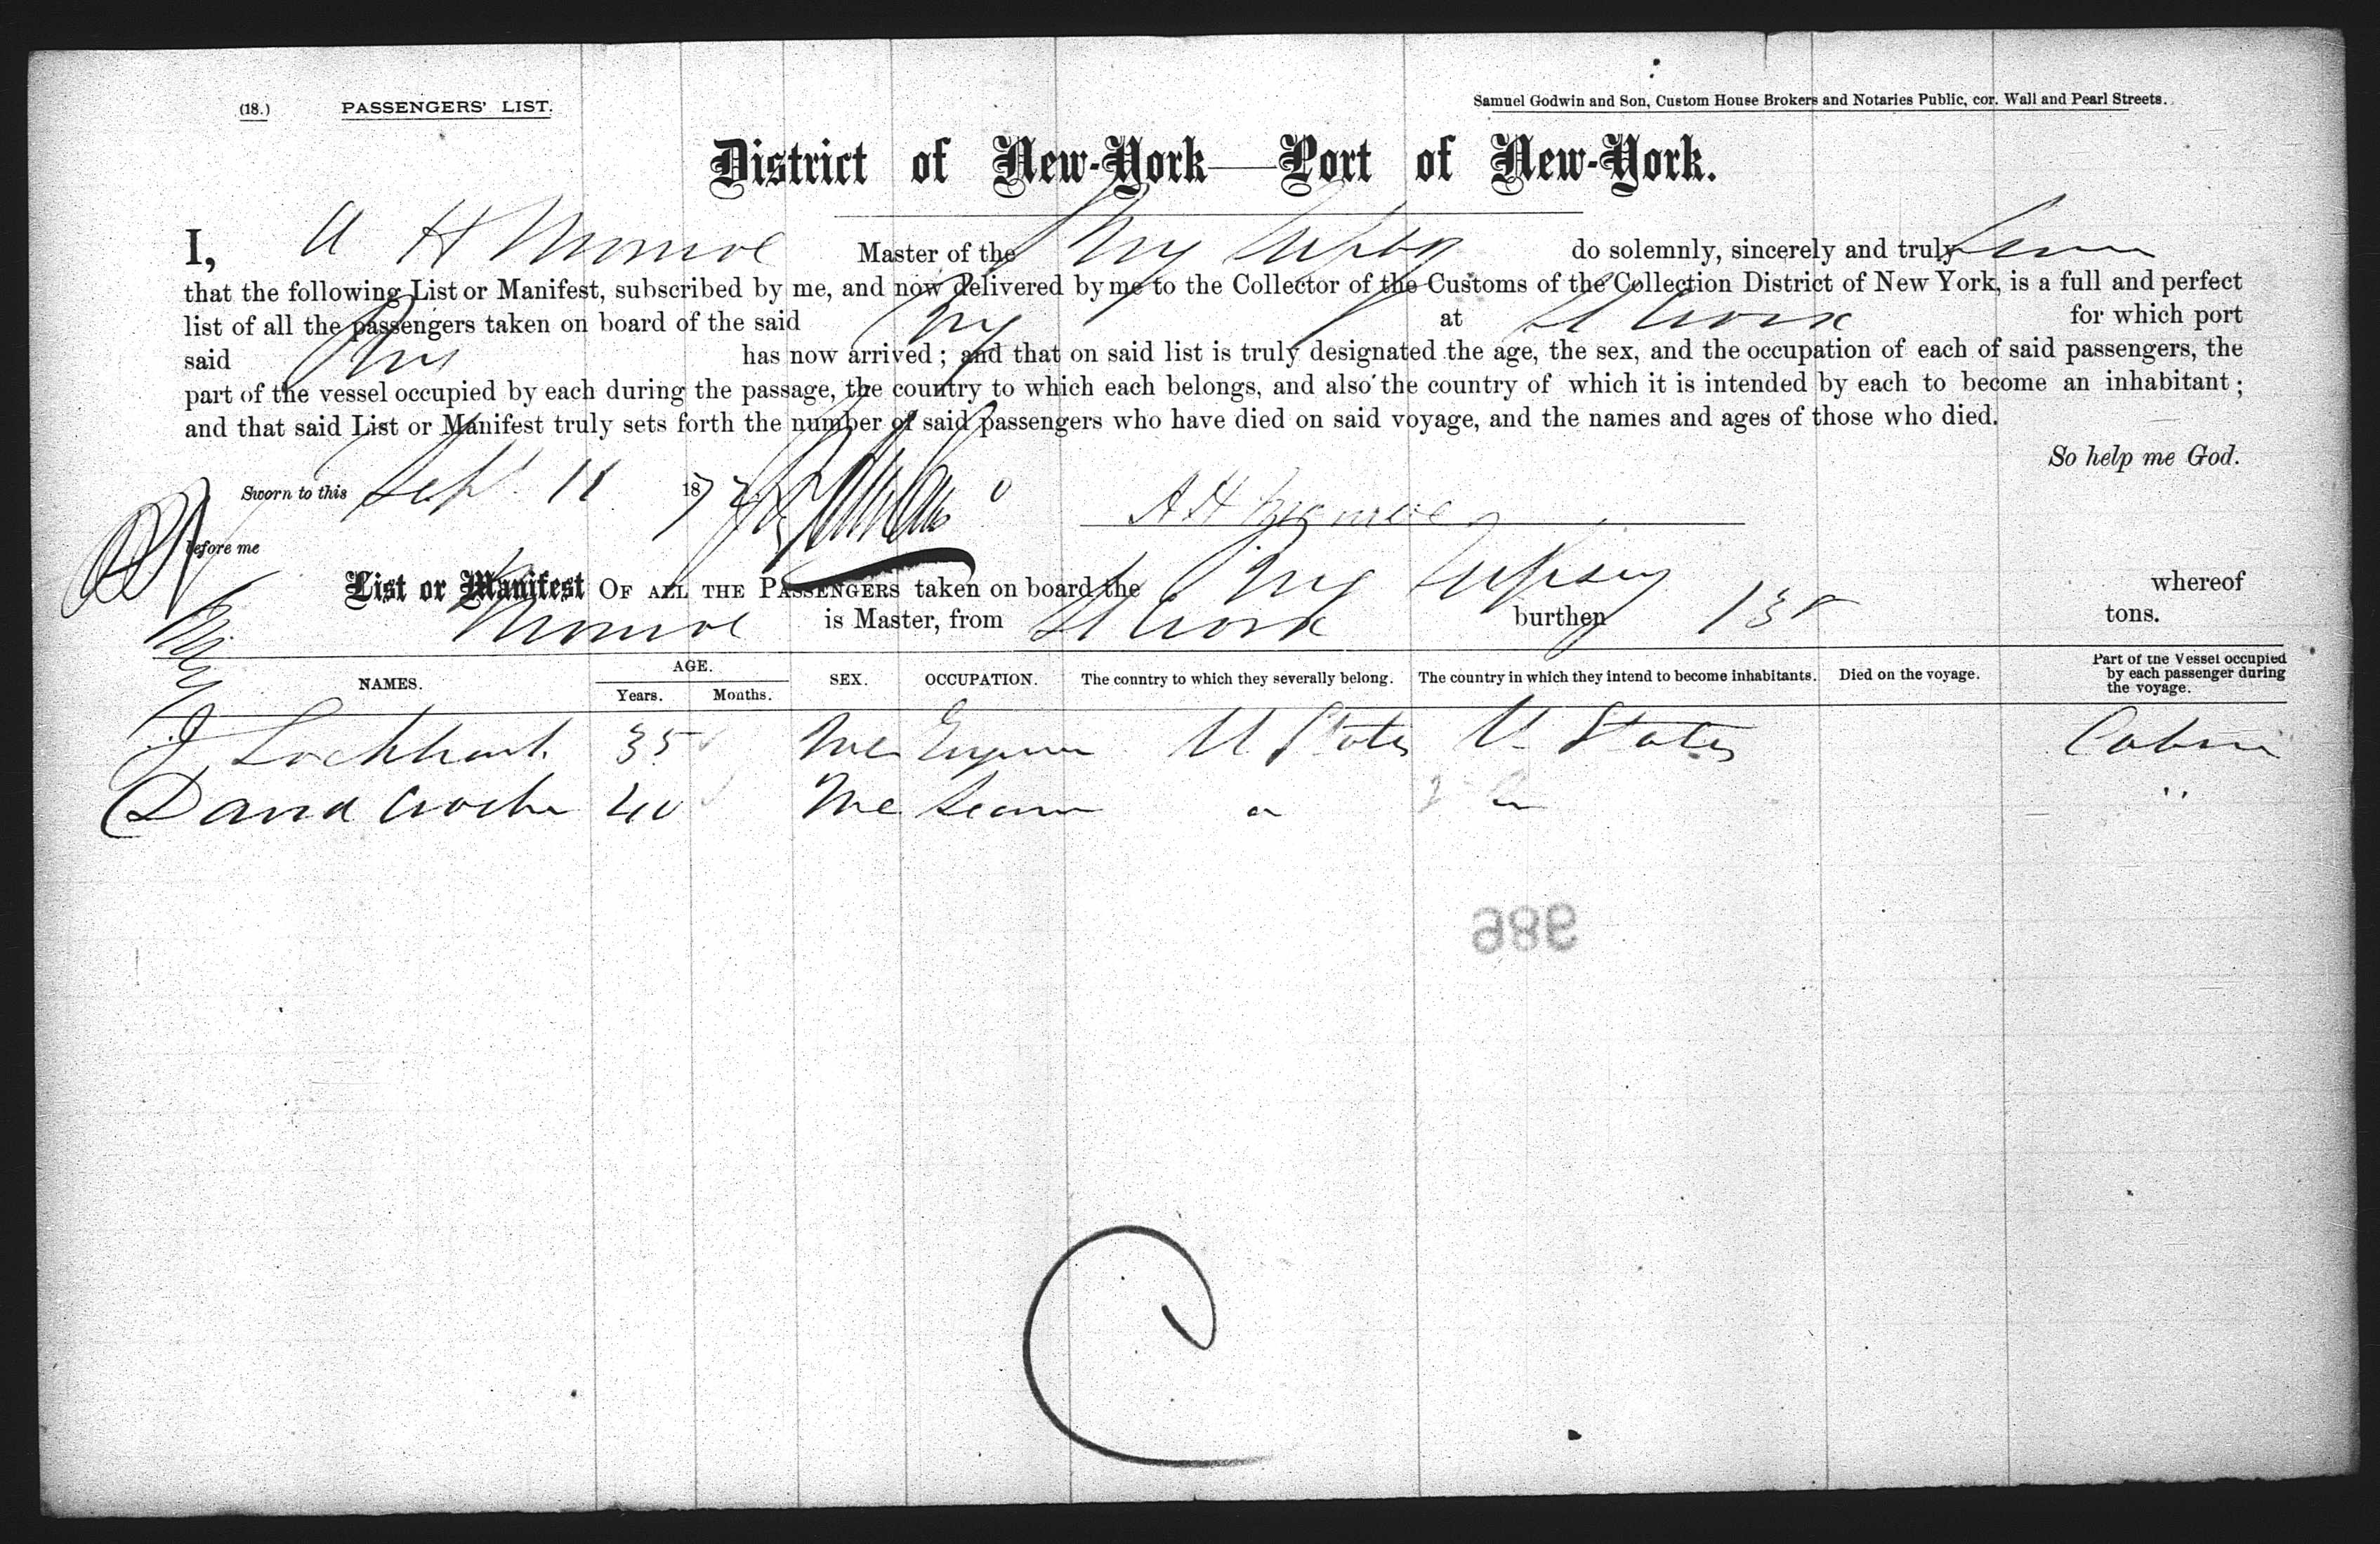 (18.) PASSENGERS' LIST. Samuel Godwin and Son, Custom House Brokers and Notaries Public, cor. Wall and Pearl Streets.
District of New-York—Port of New-York.
I, A H Monroe Master of the Brig Gipsey do solemnly, sincerely and truly swear
that the following List or Manifest, subscribed by me, and now delivered by me to the Collector of the Customs of the Collection District of New York, is a full and perfect
list of all the passengers taken on board of the said Brig at St Croix for which port
said Brig has now arrived; and that on said list is truly designated the age, the sex, and the occupation of each of said passengers, the
part of the vessel occupied by each during the passage, the country to which each belongs, and also the country of which it is intended by each to become an inhabitant;
and that said List or Manifest truly sets forth the number of said passengers who have died on said voyage, and the names and ages of those who died.
So help me God.
Sworn to this Sept 18 187 A H Monroe
before me
List or Manifest OF ALL THE PASSENGERS taken on board the Brig Gipsey whereof
Monroe is Master, from St Croix burthen 138 tons.
NAMES. AGE. Years. Months. SEX. OCCUPATION. The country to which they severally belong. The country in which they intend to become inhabitants. Died on the voyage. Part of the Vessel occupied by each passenger during the voyage.
J Lockhart 35 Me U States U States Cabin
David 40 Me Seaman "
986